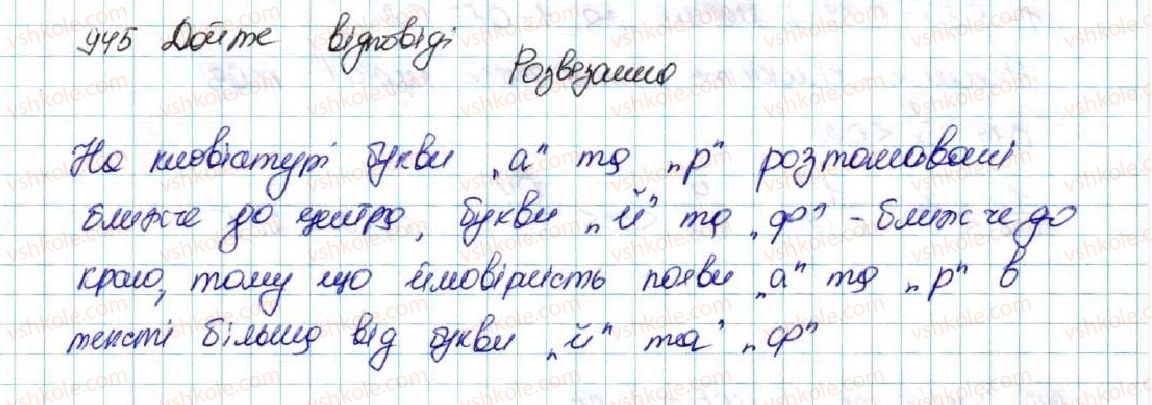 945 Дайте відповіді
Розвязання
На клавіатурі букви „а" та „р" розташовані
ближче до центра, букви „й" та „ф" - ближче до
краю, тому що ймовірність появи „а" та „р" в
тексті більша від букви „й" та „ф"